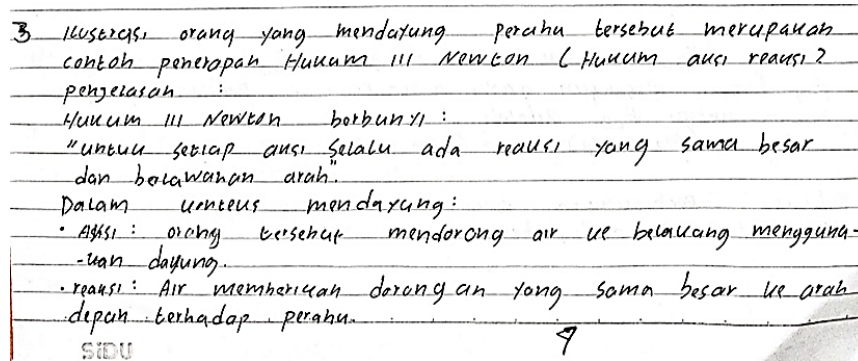 3 Ilustrasi orang yang mendayung perahu tersebut merupakan
contoh penerapan Hukum III Newton (Hukum aksi reaksi)
penjelasan :
Hukum III Newton berbunyi :
"untuk setiap aksi selalu ada reaksi yang sama besar
dan berlawanan arah".
Dalam konteks mendayung :
• Aksi : orang tersebut mendorong air ke belakang mengguna-
-kan dayung.
• reaksi : Air memberikan dorongan yang sama besar ke arah
depan terhadap perahu.
SiDU